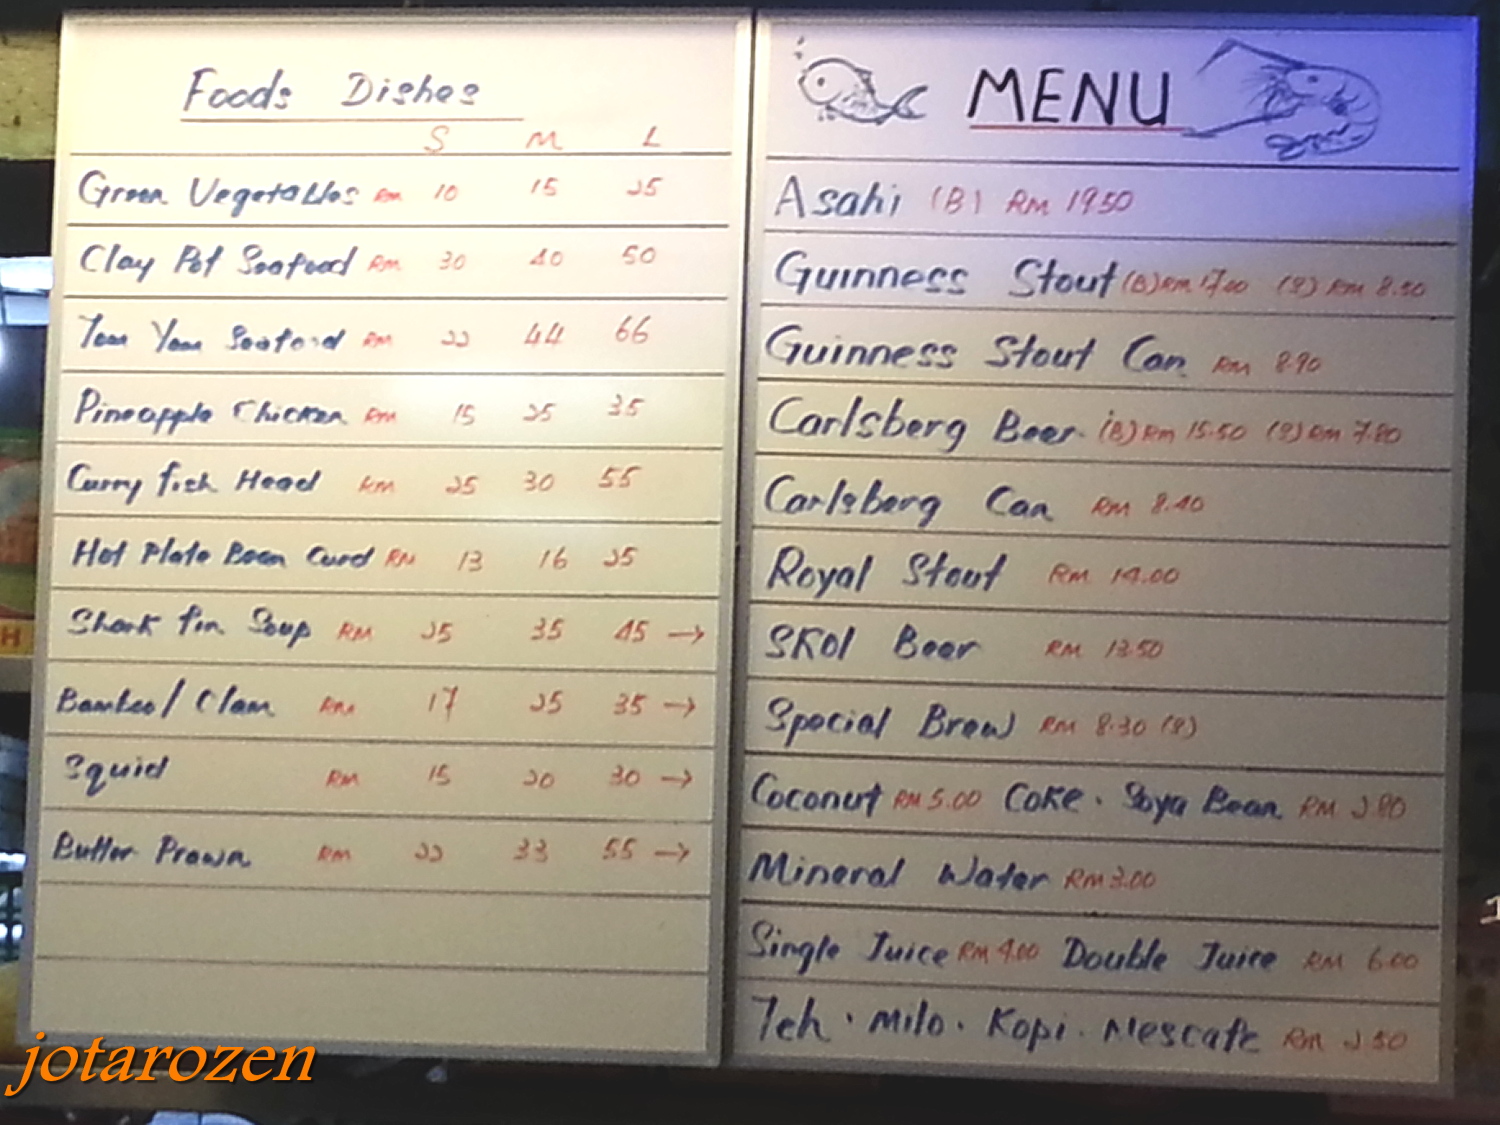 Foods Dishes
S M L
Green Vegetables RM 10 15 25
Clay Pot Seafood RM 30 40 50
Tom Yam Seafood RM 22 44 66
Pineapple Chicken RM 15 25 35
Curry fish Head RM 25 30 55
Hot Plate Bean Curd RM 13 16 25
Shark fin Soup RM 25 35 45 →
Bamboo/Clam RM 17 25 35 →
Squid RM 15 20 30 →
Butter Prawn RM 22 33 55 →
MENU
Asahi (B) RM 19.50
Guinness Stout (B) RM 17.00 (S) RM 8.50
Guinness Stout Can RM 8.90
Carlsberg Beer (B) RM 15.50 (S) RM 7.80
Carlsberg Can RM 8.40
Royal Stout RM 14.00
SKOl Beer RM 13.50
Special Brew RM 8.30 (S)
Coconut RM 5.00 Coke · Soya Bean RM 2.80
Mineral Water RM 3.00
Single Juice RM 4.00 Double Juice RM 6.00
Teh · Milo · Kopi · Nescafe RM 2.50
jotarozen